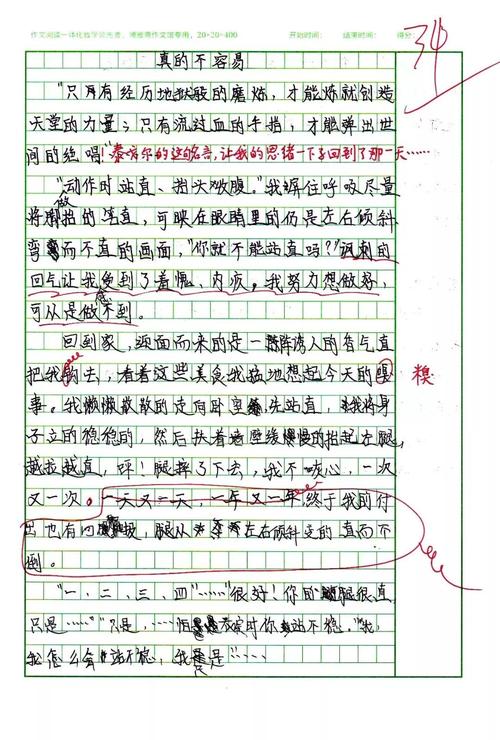 作文阅读一体化教学领先者，博雅斋作文馆专用，20×20=400 开始时间： 结束时间： 得分：
34
真的不容易
“只有经历地狱般的磨炼，才能炼就创造
天堂的力量；只有流过血的手指，才能弹出世
间的绝唱！泰戈尔的这句名言，让我的思绪一下子回到了那一天……
“动作时站直、抬头收腹。”我屏住呼吸尽量
将脚抬的笔直，可映在眼睛里的仍是左右倾斜
弯而不直的画面，“你就不能站直吗？”讽刺的
口气让我受到了羞愧、内疚。我努力想做好，
可总是做不到。
回到家，迎面而来的是一阵阵诱人的香气直
把我勾去，看着这些美食我猛地想起今天的
糗
事。我懒懒散散的走向卧室先站直，我将身
子立的稳稳的，然后扶着墙壁缓慢的抬起左腿，
越拉越直，呯！腿摔了下去，我不咳心，一次
又一次。一天又一天，一年又一年，终于我的付
出也有回报，腿从左右倾斜变的直而不
倒。
“一、二、三、四”……“很好！你的腿很直，
只是……”“只是，……但是表演时你站不稳。”我，
我怎么会站不稳，我是……